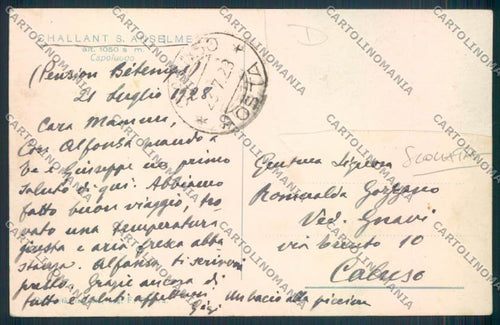 CHALLANT S. ANSELME
alt. 1050 s. m.
Capoluogo
(Pension Béthemps)
21 luglio 1928
Cara Mamma,
Con Alfonso mando a
te e Giuseppe un primo
saluto di qui. Abbiamo
fatto buon viaggio, tro
vato una temperatura
giusta e aria fresca abba
stanza. Alfonso ti scriverà
presto. Grazie ancora di
tutto e saluti affettuosi. Un bacio alla piccina
Gigi
AOSTA
Gentma Signora
Romualda Gozzano
Ved. Gnavi
via Trento 10
Caluso
SCOLLATA
CARTOLINOMANIA